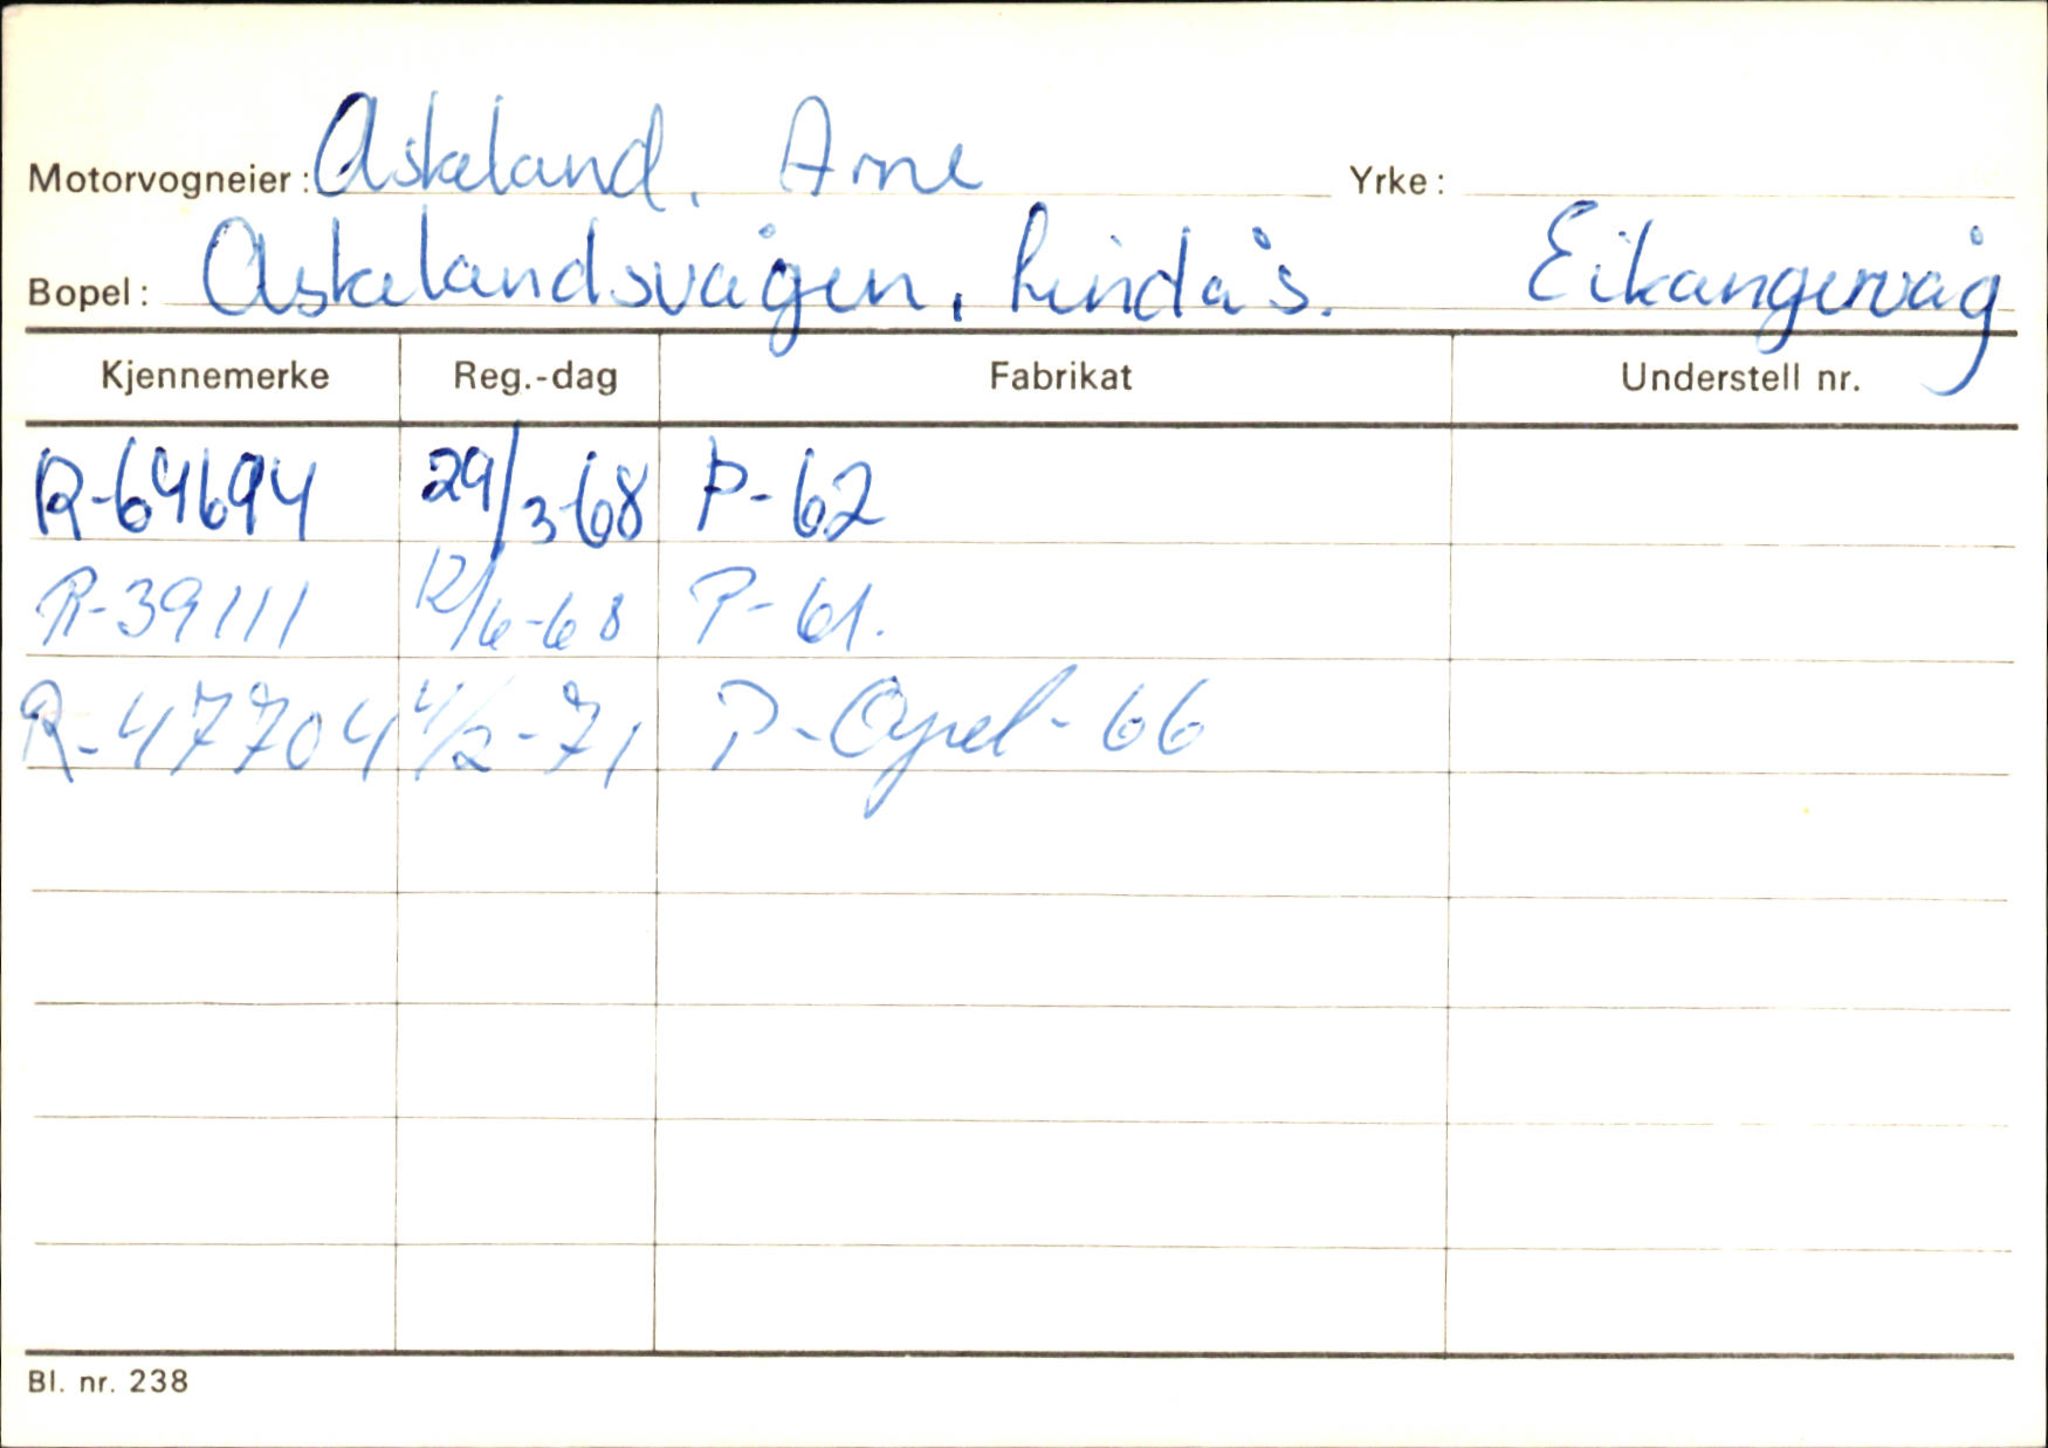 Motorvogneier: Askeland, Arne Yrke:
Bopel: Askelandsvågen, Lindås. Eikangervåg
Kjennemerke Reg.-dag Fabrikat Understell nr.
R-64694 29/3-68 P-62
R-39111 12/6-68 P-61.
R-47704 4/2-71 P-Opel-66
Bl. nr. 238